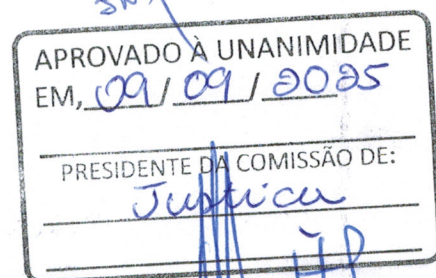 APROVADO À UNANIMIDADE
EM, 09 / 09 / 2025
PRESIDENTE DA COMISSÃO DE:
Justiça